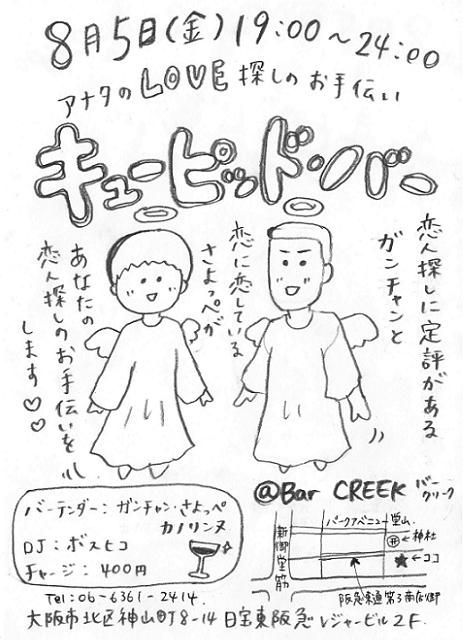 8月5日(金)19:00〜24:00
アナタのLOVE探しのお手伝い
キューピッド・バー
恋人探しに定評がある
ガンチャンと
恋に恋している
さよっぺが
あなたの
恋人探しのお手伝いを
します♡♡
バーテンダー：ガンチャン・さよっぺ
カノリンヌ
DJ：ボスヒコ
チャージ：400円
@Bar CREEK バー クリーク
パークアベニュー堂山
新御堂筋
←神社
★←ココ
阪急東通第3商店街
Tel:06-6361-2414
大阪市北区神山町8-14 日宝東阪急レジャービル2F